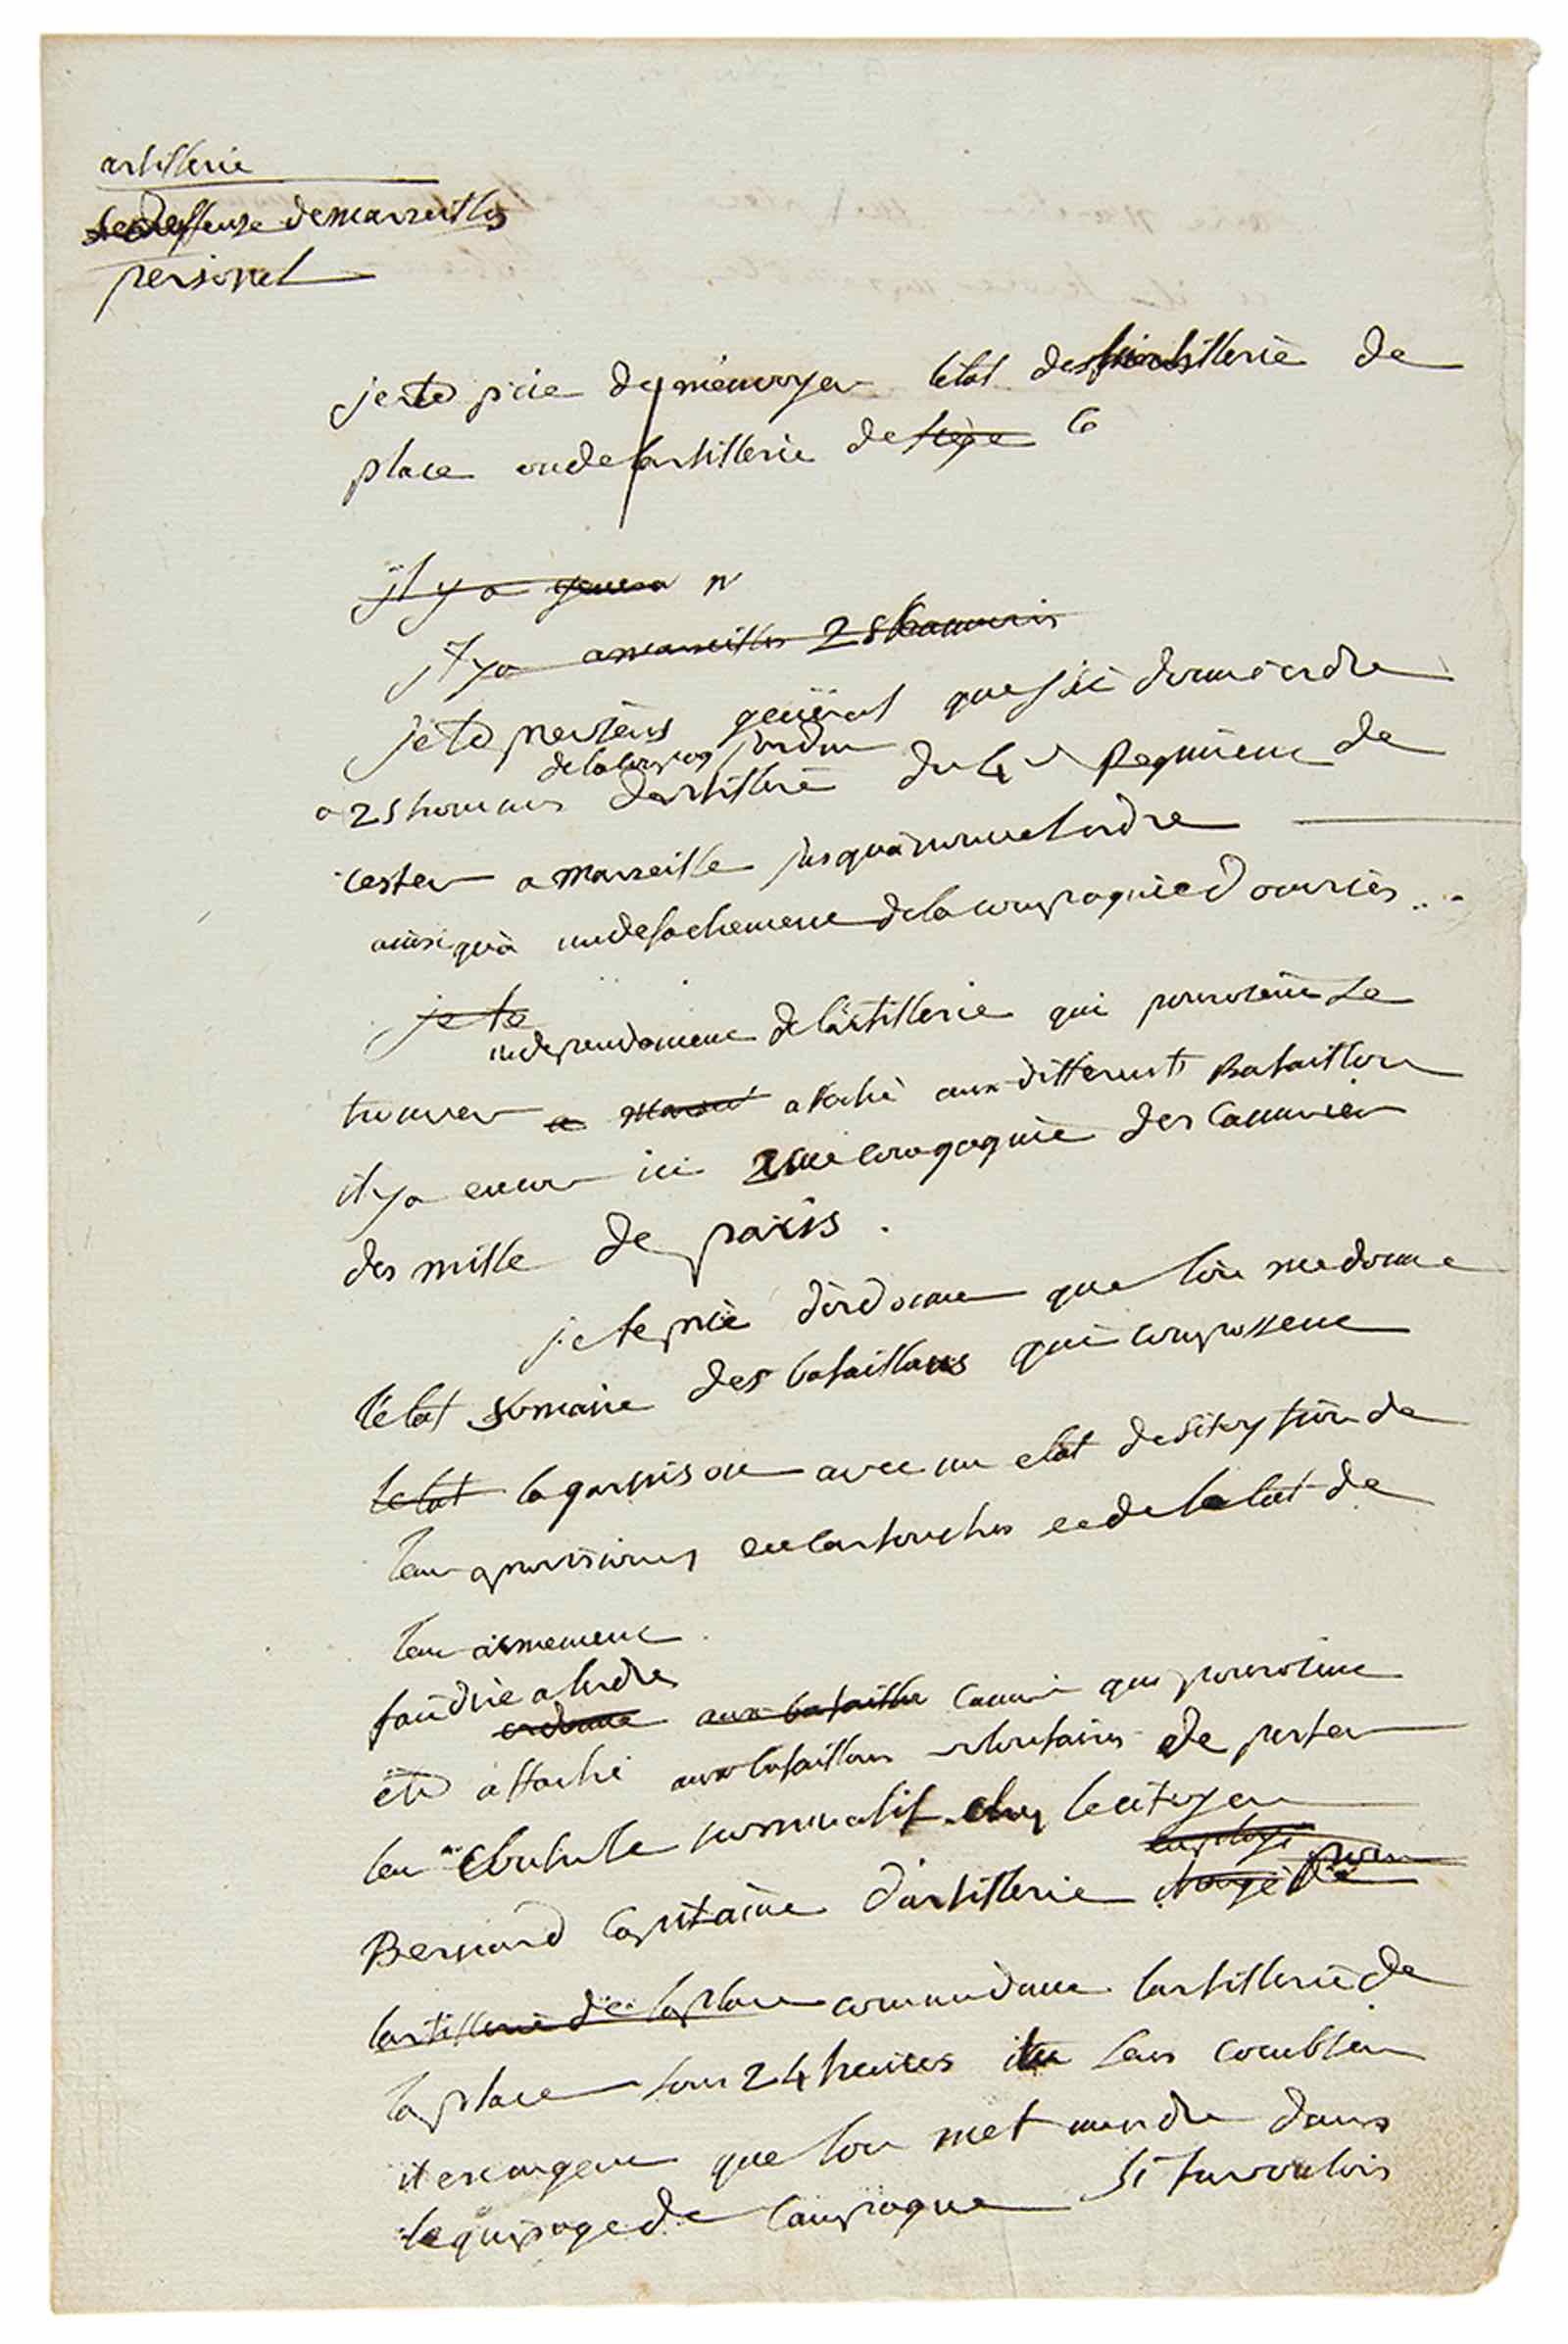 artillerie
deffense de marseilles
personel
je te prie de m'envoyer l'etat de l'artillerie de
place ou de l'artillerie de siège le
il y a
il y a a marseilles 25 canoniers
je te previens général que j'ai donné ordre
de la compag jordin
a 25 hommes d'artillerie du 4e Regiment de
rester a Marseille jusqu'à nouvel ordre
ainsi qu'à un detachement de la compagnie d'ouvriers ...
je te
independament de l'artillerie qui pouroient se
trouver a Marsei ataché aux differents Bataillon
il y a encore ici une compagnie des canonier
des mille de paris .
je te prie d'ordonner que l'on me donne
l'état somaire des bataillons qui composent
l'etat la garnison avec un etat de situation de
leur provisions en cartouches et de l'etat de
leur armement .
fait dire a l'ordre
ordonne aux bataillon canonier qui pouroient
etre attaché aux bataillons volontaires de porter
leur controlle nominatif chez le citoyen
employé pour
Bernard capitaine d'artillerie chargé de
l'artillerie de la place comandant l'artillerie de
la place sous 24 heures sans combler
il est urgent que l'on met un ordre dans
l'equipage de campagne si tu voulois